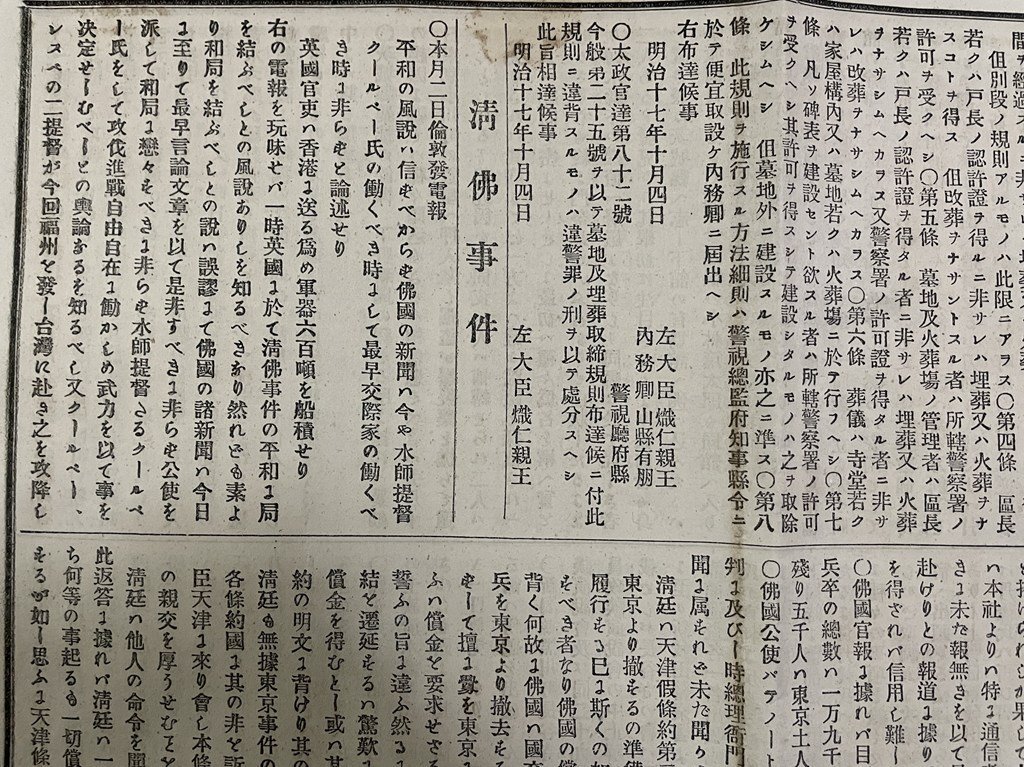 但別段ノ規則アルモノハ此限ニアラス〇第四條 區長
若クハ戸長ノ認許證ヲ得ルニ非サレハ埋葬又ハ火葬ヲナ
スコトヲ得ス 但改葬ヲナサントスル者ハ所轄警察署ノ
許可ヲ受クヘシ〇第五條 墓地及火葬塲ノ管理者ハ區長
若クハ戸長ノ認許證ヲ得タル者ニ非サレハ埋葬又ハ火葬
ヲナサシムヘカラス又警察署ノ許可證ヲ得タル者ニ非サ
レハ改葬ヲナサシムヘカラス〇第六條 葬儀ハ寺堂若ク
ハ家屋構內又ハ墓地若クハ火葬塲ニ於テ行フヘシ〇第七
條 凡ソ碑表ヲ建設セント欲スル者ハ所轄警察署ノ許可
ヲ受クヘシ其許可ヲ得スシテ建設シタルモノハ之ヲ取除
ケシムヘシ 但墓地外ニ建設スルモノ亦之ニ準ス〇第八
條 此規則ヲ施行スル方法細則ハ警視總監府知事縣令ニ
於テ便宜取設ケ內務卿ニ屆出ヘシ
右布達候事
明治十七年十月四日 左大臣熾仁親王
內務卿山縣有朋
〇太政官達第八十二號 警視廳府縣
今般第二十五號ヲ以テ墓地及埋葬取締規則布達候ニ付此
規則ニ違背スルモノハ違警罪ノ刑ヲ以テ處分スヘシ
此旨相達候事
明治十七年十月四日 左大臣熾仁親王
淸佛事件
〇本月二日倫敦發電報
平和の風說ハ信ずべからず佛國の新聞ハ今や水師提督
クールベー氏の働くべき時にして最早交際家の働くべ
き時に非らずと論述せり
英國官吏ハ香港に送る爲め軍器六百噸を船積せり
右の電報を玩味せバ一時英國に於て淸佛事件の平和に局
を結ぶべしとの風說ありしを知るべきなり然れども素よ
り和局を結ぶべしとの說ハ誤謬にて佛國の諸新聞ハ今日
に至りて最早言論文章を以て是非すべきに非らず公使を
派して和局に戀々すべきに非らず水師提督たるクールベ
ー氏をして攻伐進戰自由自在に働かしめ武力を以て事を
決定せしむべしとの輿論なるを知るべし又クールベー、
レスペの二提督が今回福州を發し台灣に赴き之を攻降し
ハ本社よりハ特に通信者
きに未だ報無きを以て
赴けりとの報道に據り
を得されバ信用し難し
〇佛國官報に據れバ目
兵卒の總數ハ一万九千
殘り五千人ハ東京土人
〇佛國公使バテノート
判に及びし時總理衙門
聞に属すれど未だ聞か
淸廷ハ天津假條約第
東京より撤するの準備
履行する已に斯くの如
すべき者なり佛國の償
背く何故に佛國ハ國
兵を東京より撤去せ
ずして擅に釁を東京
ふハ償金を要求せさ
誓ふの旨に違ふ然る
結を遷延するハ驚歎
償金を得むとし或ハ
約の明文に背けり其の
淸廷も無據東京事件の
各條約國に其の非を訴
臣天津に來り會し本條
の親交を厚うせむこと
淸廷ハ他人の命令を聞
此返答に據れバ淸廷ハ一
ち何等の事起るも一切償
するが如し思ふに天津條